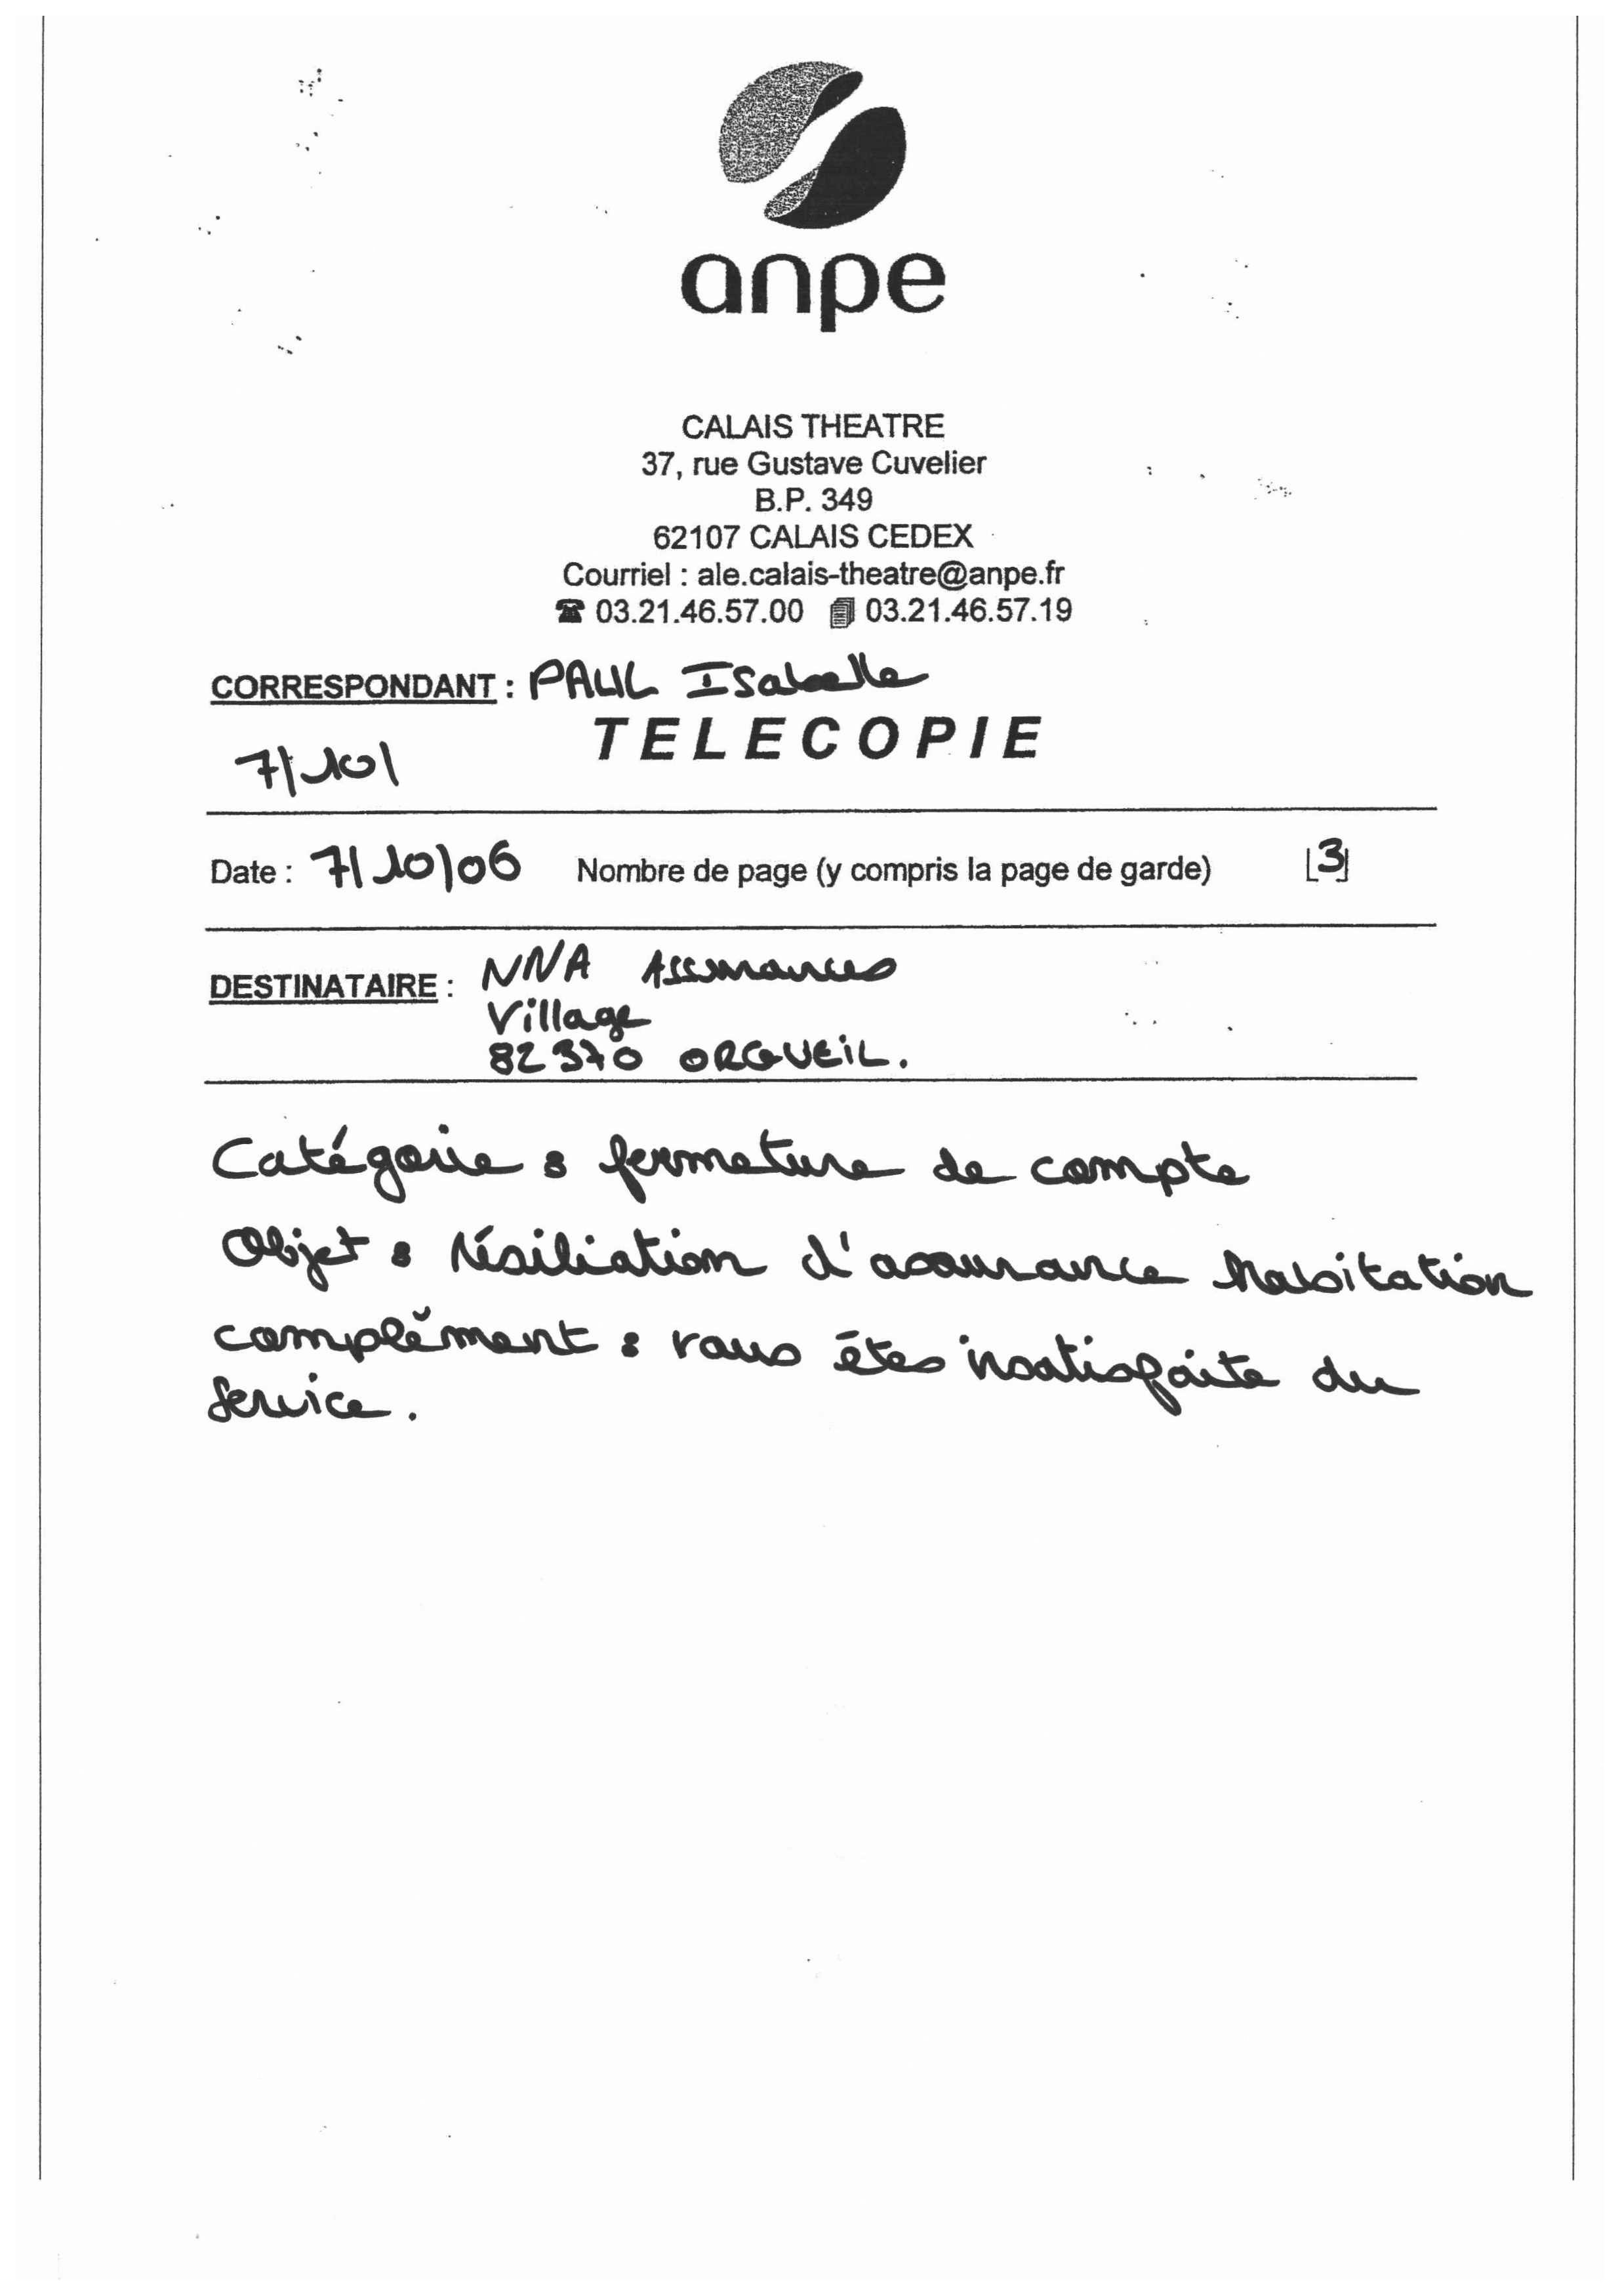 anpe
CALAIS THEATRE
37, rue Gustave Cuvelier
B.P. 349
62107 CALAIS CEDEX
Courriel : ale.calais-theatre@anpe.fr
☎ 03.21.46.57.00 03.21.46.57.19
CORRESPONDANT : PAUL Isabelle
TELECOPIE
7/10/
Date : 7/10/06 Nombre de page (y compris la page de garde) [3]
DESTINATAIRE : NNA Assurances
Village
82370 ORGUEIL.
Catégorie : fermeture de compte
Objet : résiliation d'assurance habitation
complément : vous êtes insatisfaite du
service.